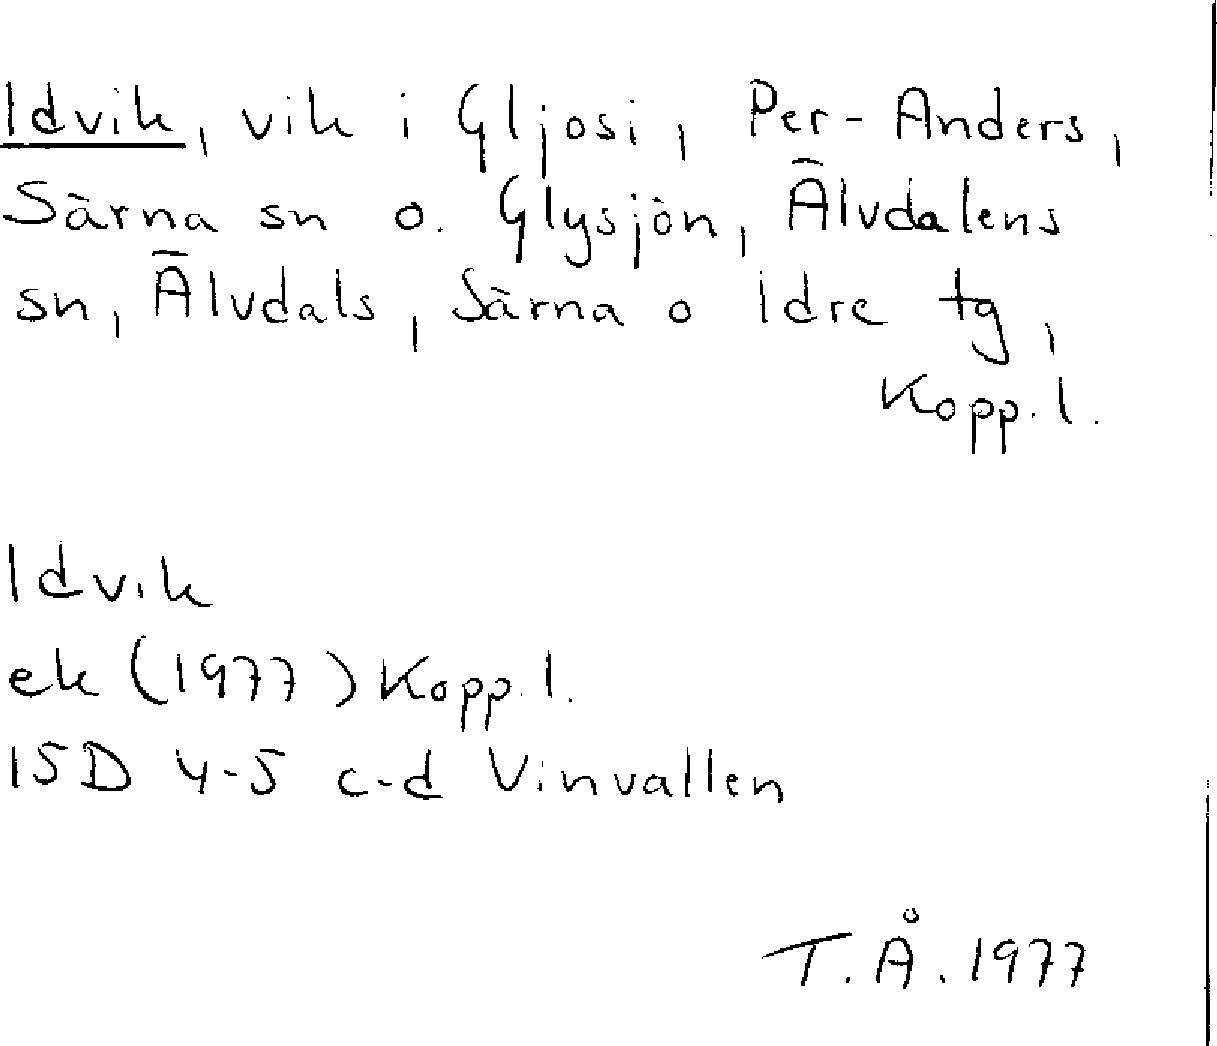 Idvik, vik i Gljosi, Per-Anders,
Särna sn o. Glysjön, Älvdalens
sn, Älvdals, Särna o Idre tg,
Kopp. l.
Idvik
ek (1977) Kopp. l.
15D 4-5 c-d Vinvallen
T. Å. 1977